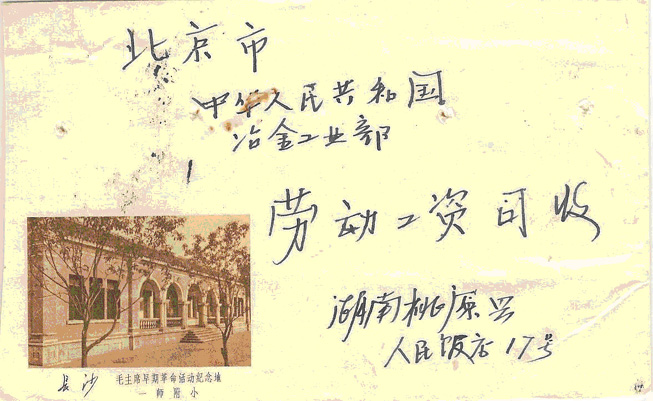 北京市
中华人民共和国
冶金工业部
劳动工资司收
湖南桃源县
人民饭店17号
长沙 毛主席早期革命活动纪念地
一师附小